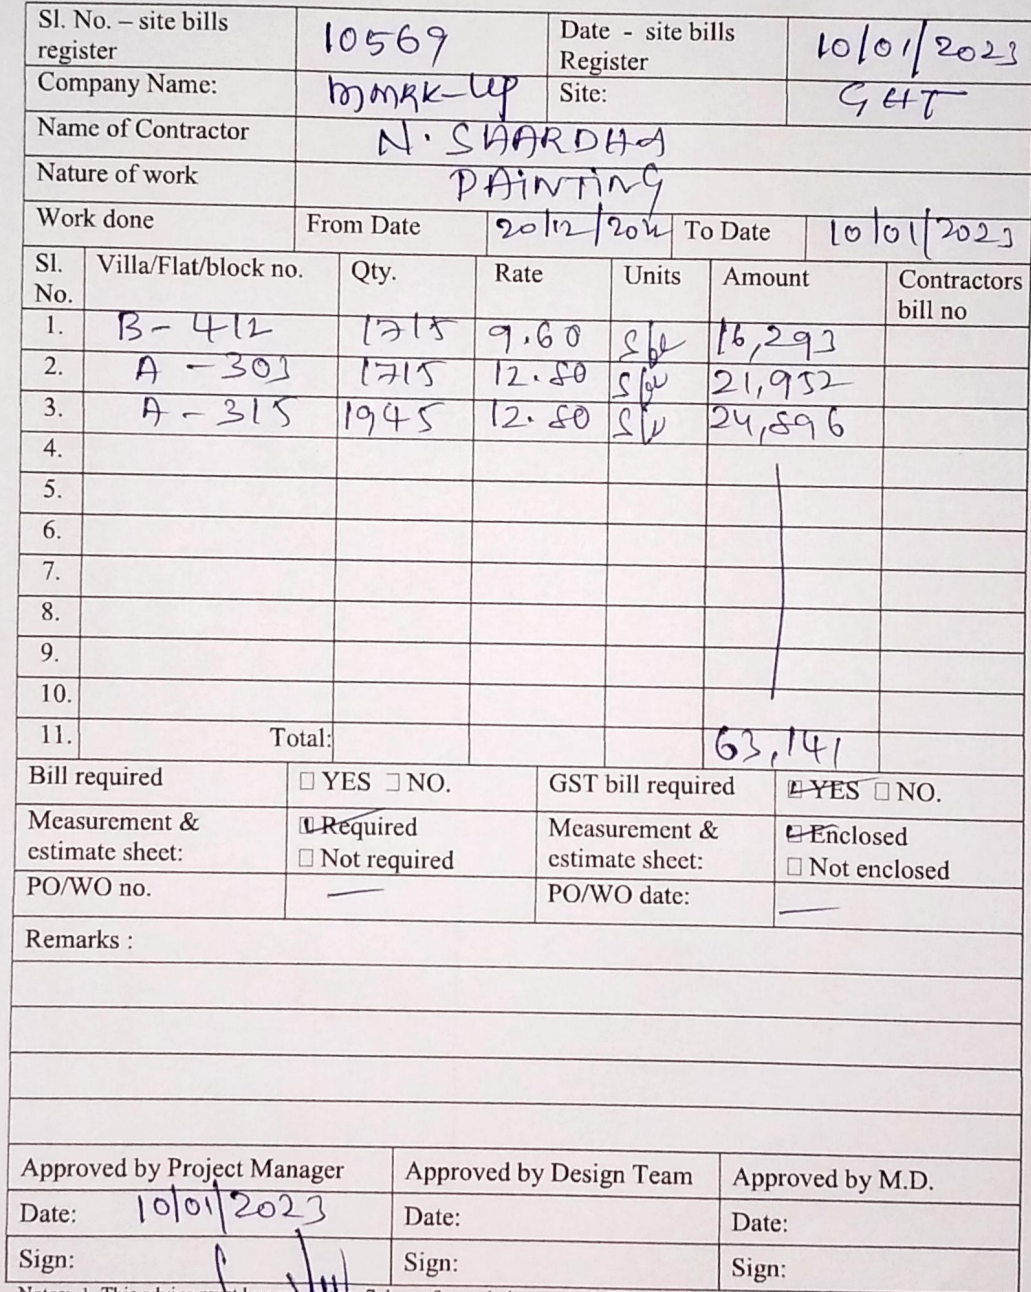 Sl. No. – site bills register 10569 Date - site bills Register 10/01/2023
Company Name: Site: GHT
Name of Contractor N. SHARDHA
Nature of work PAINTING
Work done From Date To Date 10/01/2023
Sl. No. Villa/Flat/block no. Qty. Rate Units Amount Contractors bill no
1. B - 412 1715 9.60 16,293
2. A - 303 1715 12.80 21,952
3. A - 315 1945 12.80 24,896
4.
5.
6.
7.
8.
9.
10.
11. Total: 63,141
Bill required □ YES □ NO. GST bill required □ YES □ NO.
Measurement & estimate sheet: □ Required □ Not required Measurement & estimate sheet: □ Enclosed □ Not enclosed
PO/WO no. — PO/WO date: —
Remarks :
Approved by Project Manager Approved by Design Team Approved by M.D.
Date: 10/01/2023 Date: Date:
Sign: Sign: Sign: